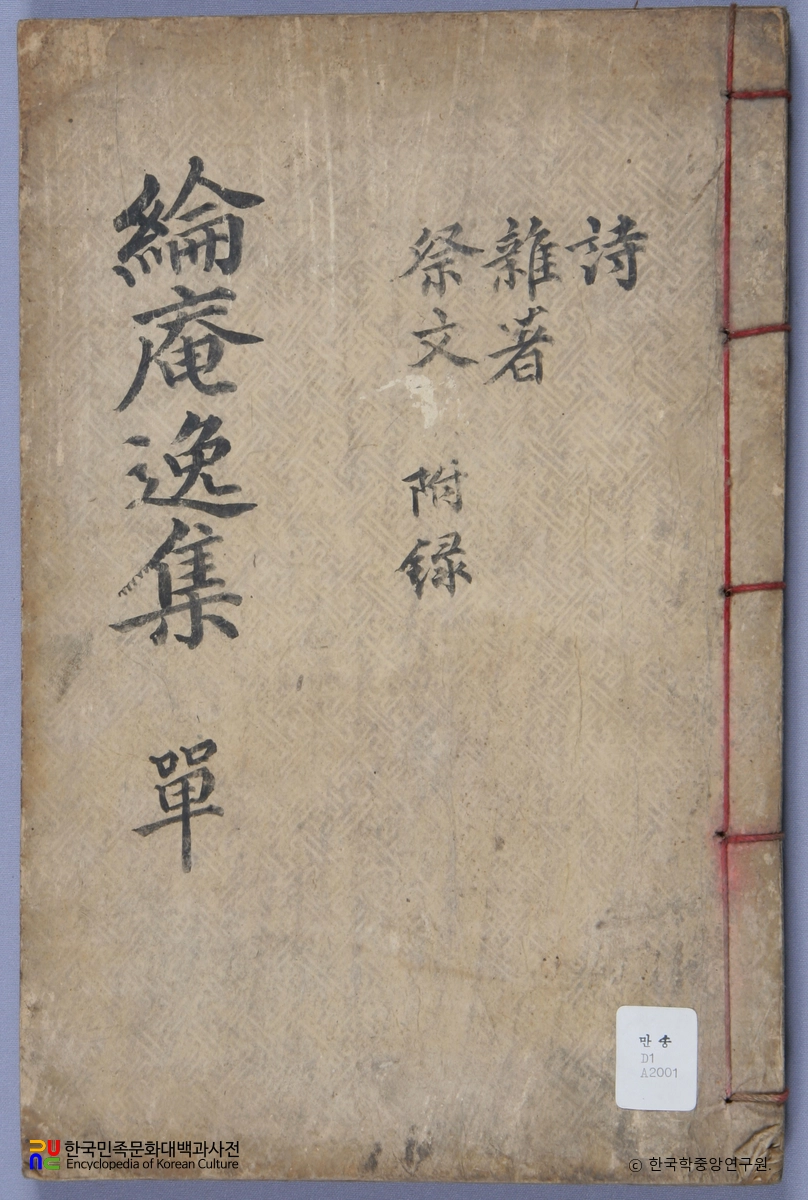 詩
雜著
祭文 附録
綸庵逸集 單
만송
D1
A2001
한국민족문화대백과사전
Encyclopedia of Korean Culture
© 한국학중앙연구원.